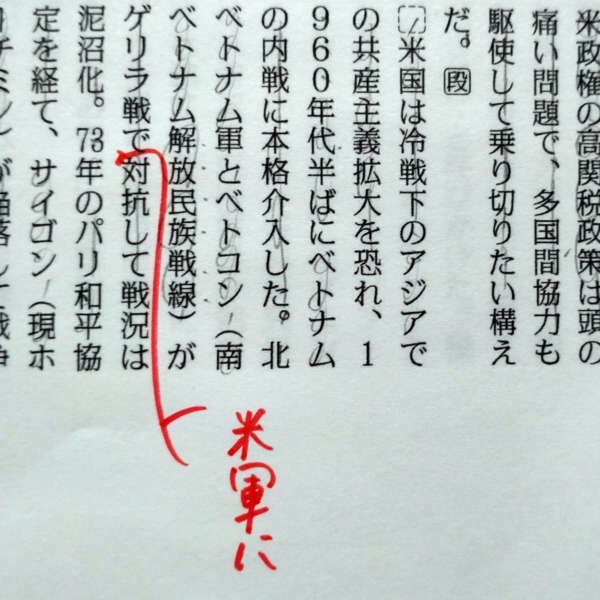 米政権の高関税政策は頭の
痛い問題で、多国間協力も
駆使して乗り切りたい構え
だ。段
米国は冷戦下のアジアで
の共産主義拡大を恐れ、1
960年代半ばにベトナム
の内戦に本格介入した。北
ベトナム軍とベトコン(南
ベトナム解放民族戦線)が
ゲリラ戦で対抗して戦況は
泥沼化。73年のパリ和平協
定を経て、サイゴン(現ホ
が陥落して戦争
米軍に